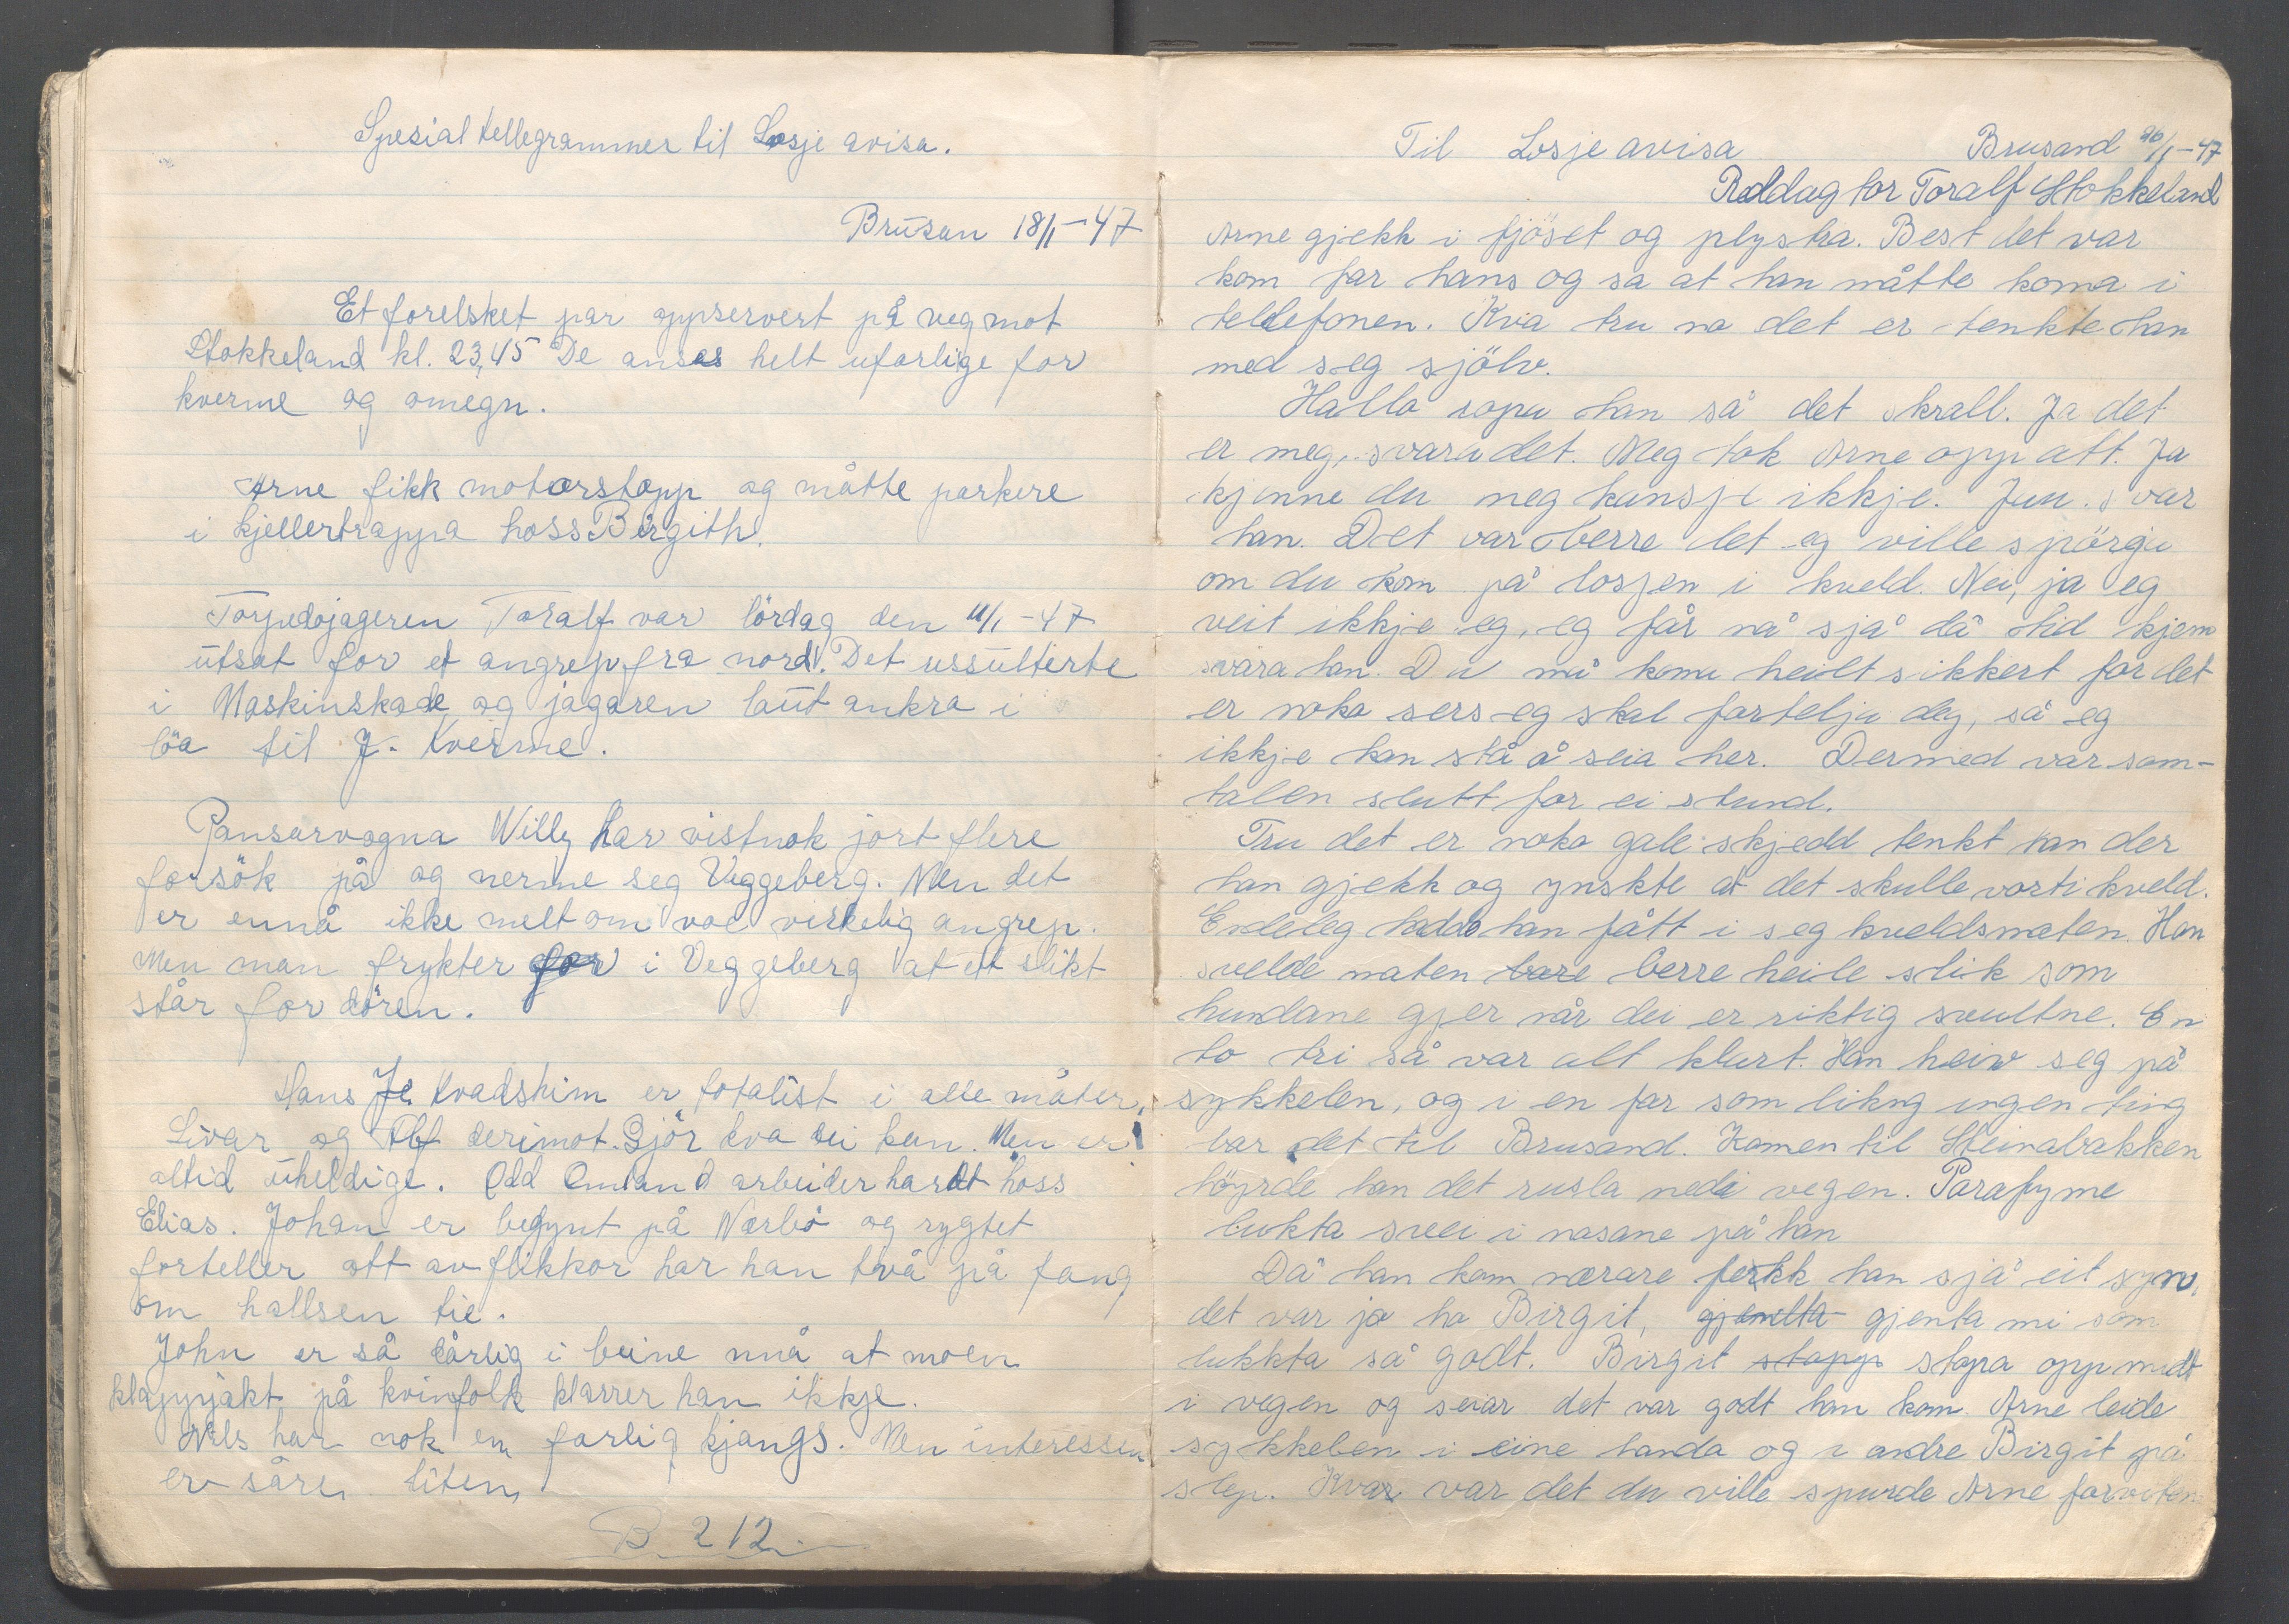 Spesial tellegrammer til Losje avisa.
Brusan 18/1-47
Et forelsket par oppservert på veg mot
Stokkeland kl. 23,45 De anses helt ufarlige for
kverme og omegn.
Arne fikk motorstopp og måtte parkere
i kjellertrappa hoss Birgith.
Torpedojageren Toralf var lördag den 11/1-47
utsat for et angrep fra nord. Det ussulterte
i Maskinskade og jagaren laut ankra i
löa til J. Kverme.
Pansarvogna Willy har vistnok jort flere
forsök på og nerme seg Veggeberg. Men det
er ennå ikke melt om noe virkelig angrep.
Men man frykter for i Veggeberg at et slikt
står for dören.
Hans J. Kvadshim er totalist i alle måter,
Livar og Alf derimot. Gjör kva dei kan. Men er
altid uheldige. Odd Omland arbeider hardt hoss
Elias. Johan er begynt på Nærbö og rygtet
forteller att av flikkor har han två på fang
om hallsen tie.
John er så dårlig i beine nuå at moen
klappjakt på kvinfolk klarrer han ikkje.
Nils har nok en farlig kjangs. Men interessen
er såre liten
B 212.
Til Losje avisa Brusand 20/1-47
Reddagtor Toralf Stokkeland
Arne gjekk i fjöset og plystra. Best det var
kom far hans og sa at han måtte koma i
tellefonen. Kva tru no det er tenkte han
med seg sjölv.
Hallo ropa han så det skrall. Ja det
er meg, svara det. Meg tok Arne opp att. Ja
kjenne du meg kansje ikkje. Juu. svar
han. Det var berre det eg ville spörga
om du kom på losjen i kveld. Nei, ja eg
veit ikkje eg, eg får nå sjå då tid kjem
svara han. Du må koma heilt sikkert for det
er noko sers eg skal fortelja deg, så eg
ikkje kan stå å seia her. Dermed var sam-
talen slutt for ei stund.
Tru det er noko gale skjedd tenkt han der
han gjekk og ynskte at det skulle vorti kveld.
Endeleg hadde han fått i seg kveldsmaten. Han
svelde maten bare berre heile slik som
hundane gjer når dei er riktig svultne. En
to tri så var alt klart. Han heiv seg på
sykkelen, og i en far som likng ingen ting
bar det til Brusand. Komen til Steinabakken
höyrde han det rusla nedi vegen. Parafyme
lukta svei i nasane på han
Då han kom nærare fekk han sjå eit syn,
det var jo ho Birgit, gjentta gjenta mi som
lukkta så godt. Birgit stopp stopa opp midt
i vegen og seiar det var godt han kom. Arne leide
sykkelen i eine handa og i andre Birgit på
slep. Kvar var det du ville spurde Arne forviten